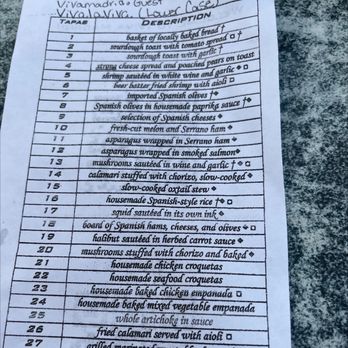 Vivamadrid Guest
Viva la Viva. (Lower Case)
TAPAS DESCRIPTION
1 basket of locally baked bread †
2 sourdough toast with tomato spread ◘ †
3 sourdough toast with garlic †
4 strong cheese spread and poached pears on toast
5 shrimp sautéed in white wine and garlic ◆ ◘
6 beer batter fried shrimp with aioli ◘
7 imported Spanish olives † ◆
8 Spanish olives in housemade paprika sauce † ◆
9 selection of Spanish cheeses ◆
10 fresh-cut melon and Serrano ham ◆
11 asparagus wrapped in Serrano ham ◆
12 asparagus wrapped in smoked salmon ◆
13 mushrooms sautéed in wine and garlic † ◆ ◘
14 calamari stuffed with chorizo, slow-cooked ◆
15 slow-cooked oxtail stew ◆
16 housemade Spanish-style rice † ◆ ◘
17 squid sautéed in its own ink ◆
18 board of Spanish hams, cheeses, and olives ◆ ◘
19 halibut sautéed in herbed carrot sauce ◆
20 mushrooms stuffed with chorizo and baked ◆
21 housemade chicken croquetas
22 housemade seafood croquetas
23 housemade baked chicken empanada ◘
24 housemade baked mixed vegetable empanada
25 whole artichoke in sauce
26 fried calamari served with aioli ◘
27 grilled